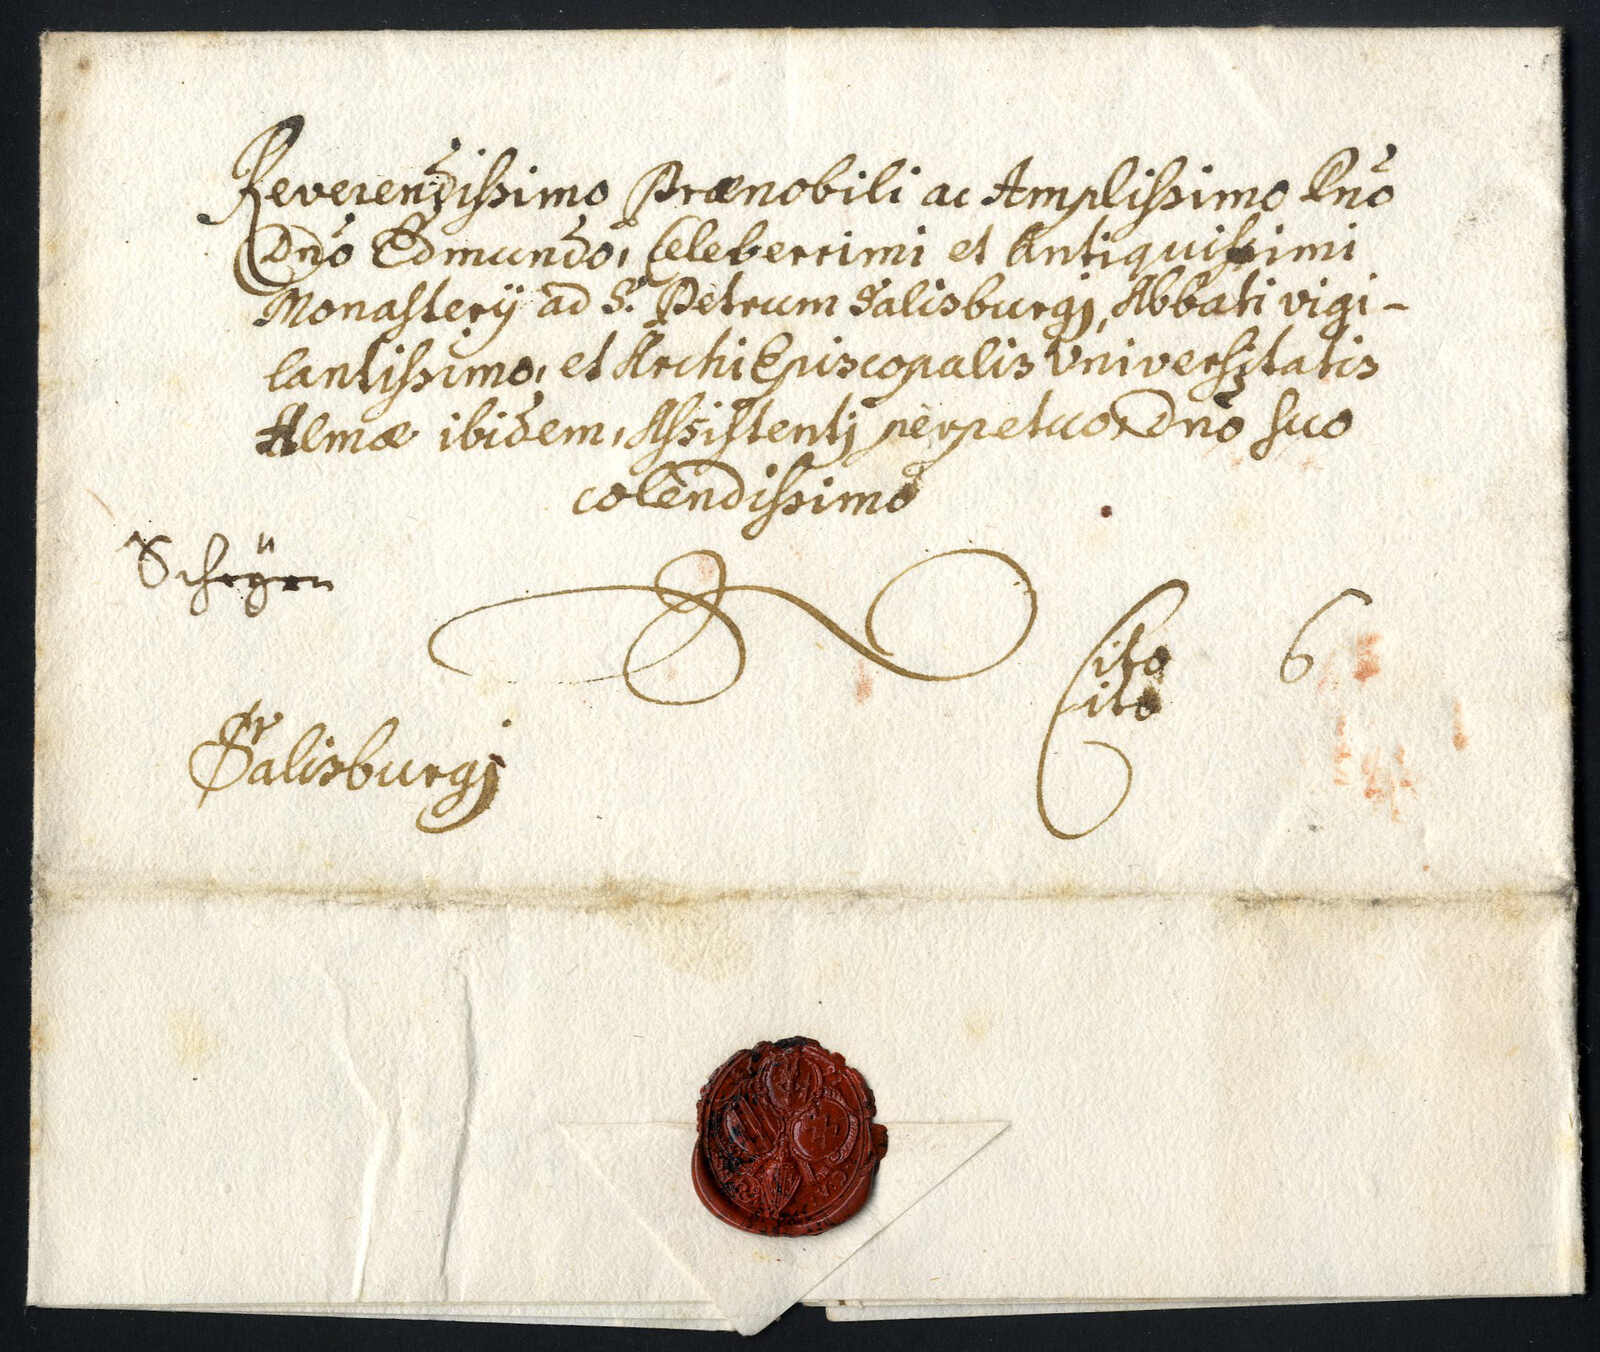 Reverendissimo Prænobili ac Amplissimo Dnō
Dnō Edmundo, Celeberrimi et Antiquissimi
Monasterÿ ad S. Petrum Salisburgj, Abbati vigi-
lantissimo, et ArchiEpiscopalis Universitatis
Almæ ibidem, Assistentj perpetuo Dnō suo
colendissimo
Scheÿrn
Cito 6
Cito
Salisburgj